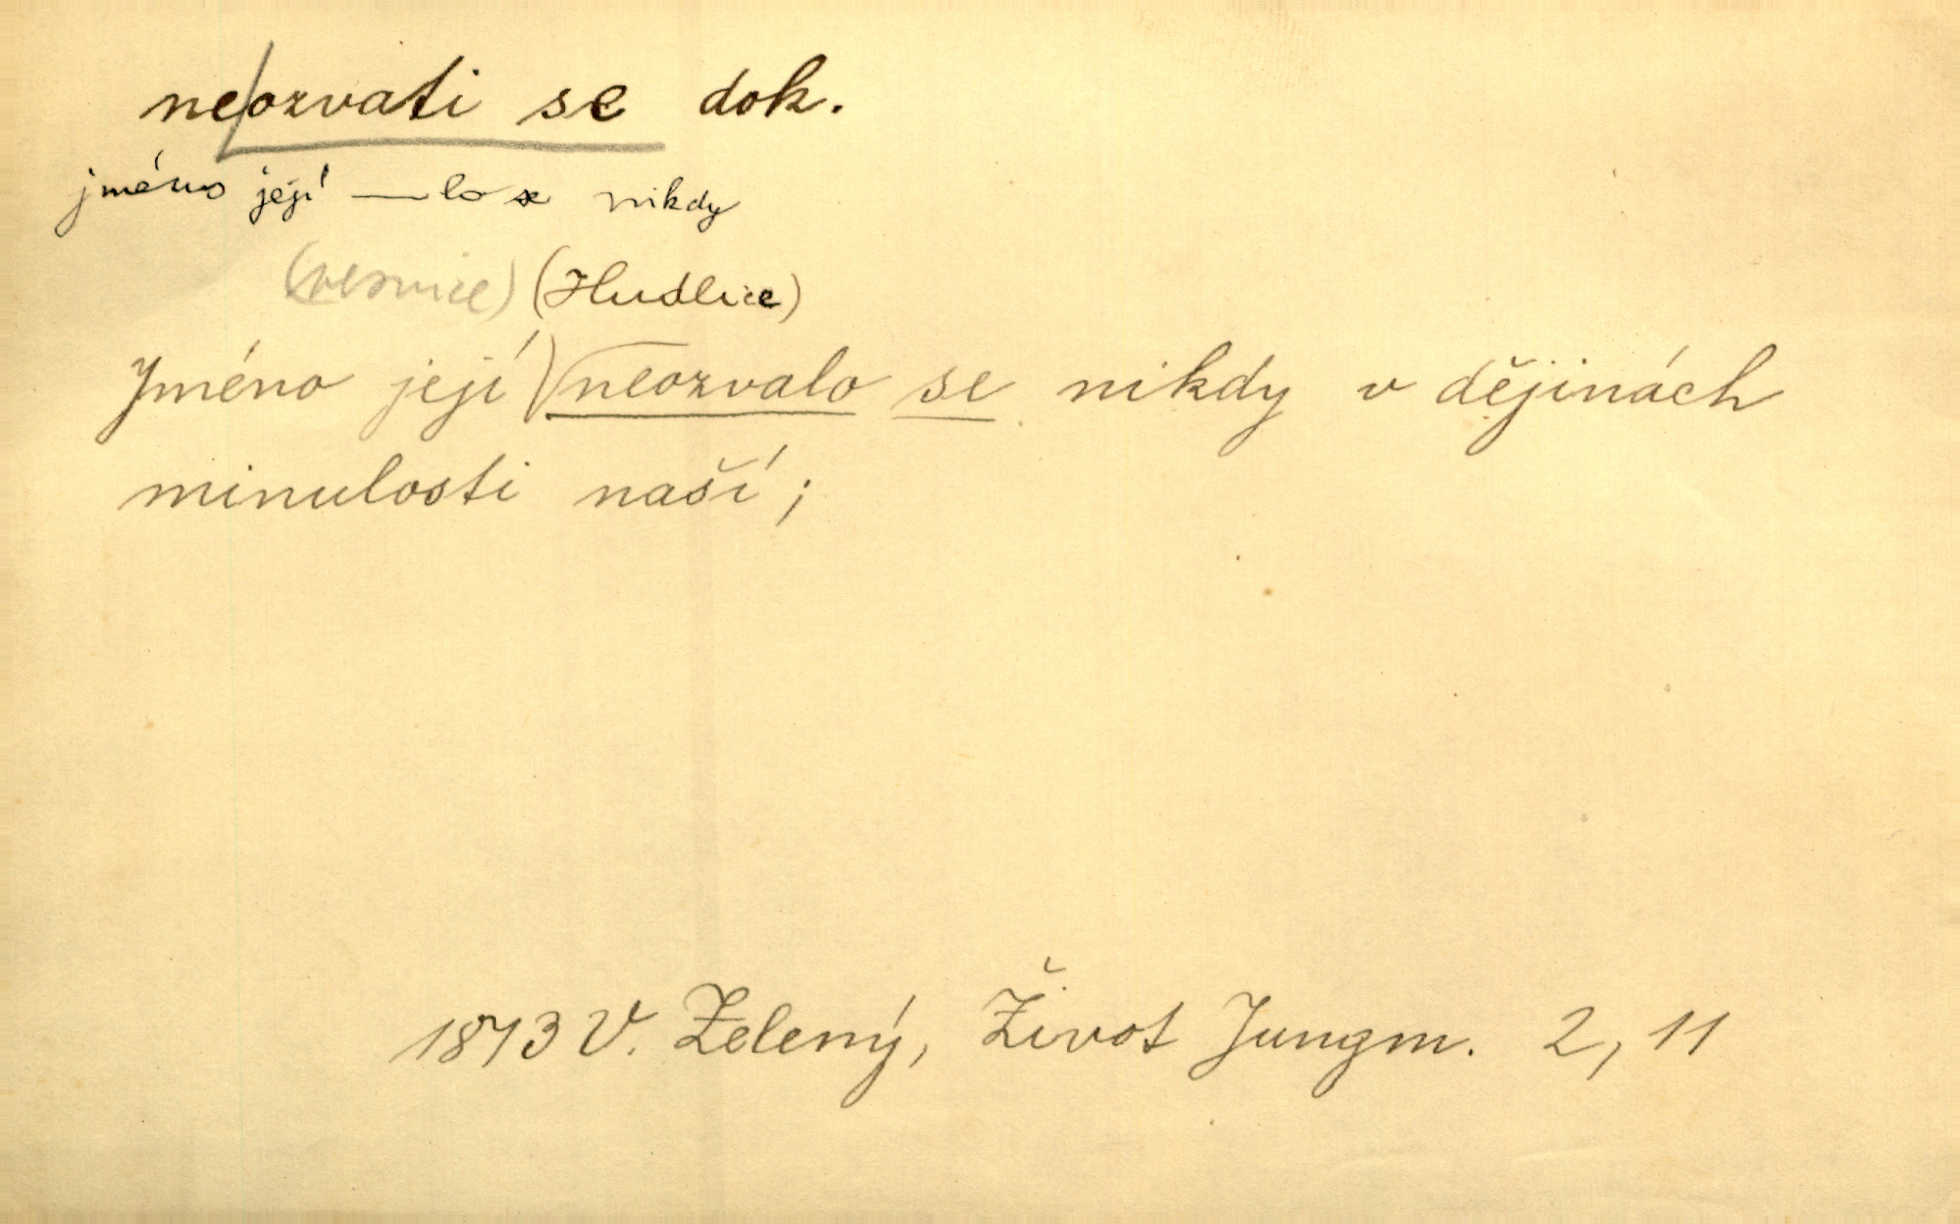 ne/ozvati se dok.
jméno její —lo se nikdy
(vesnice) (Hudlice)
Jméno její neozvalo se nikdy v dějinách
minulosti naší;
1873 V. Zelený, Život Jungm. 2, 11